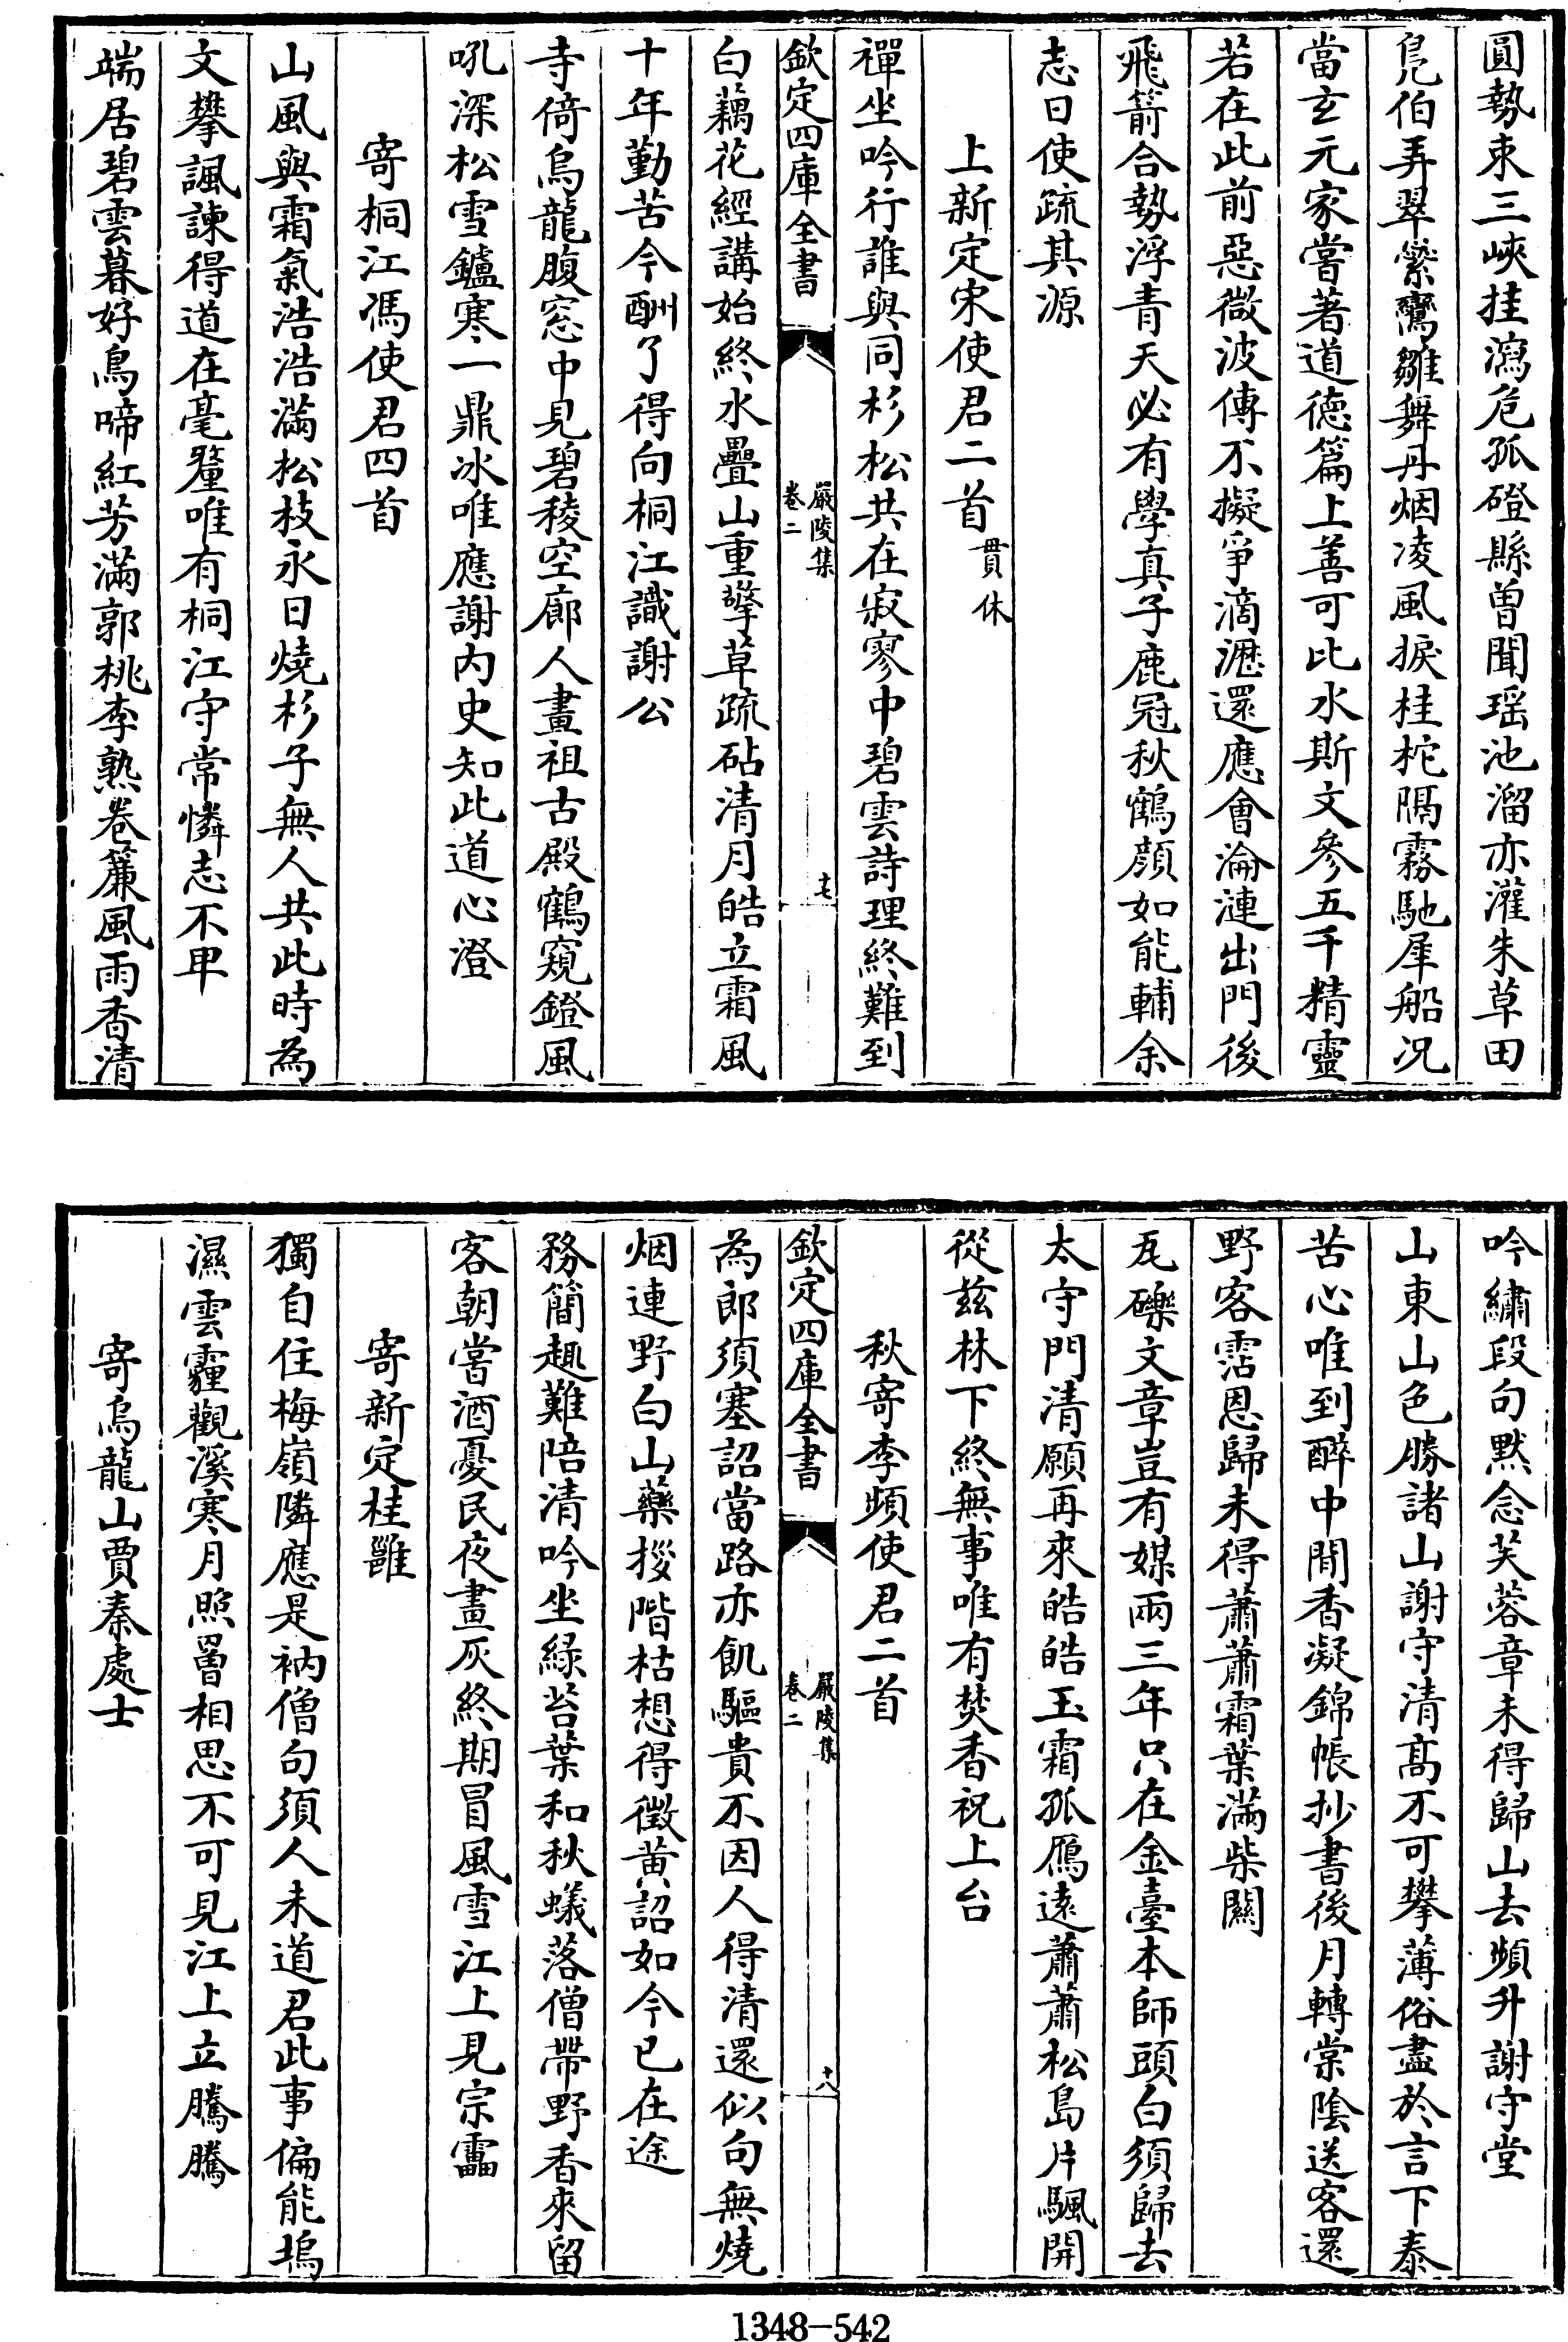 圓勢束三峽挂瀉危孤磴縣曽聞瑶池溜亦灌朱草田
鳬伯弄翠蘂鸞雛舞丹烟凌風捩桂柁隔霧馳犀船况
當玄元家嘗著道徳篇上善可比水斯文參五千精靈
若在此前惡微波傳不擬爭滴瀝還應會淪漣出門後
飛箭合勢浮青天必有學真子鹿冠秋鶴顔如能輔余
志日使疏其源
上新定宋使君二首貫休
禪坐吟行誰與同杉松共在寂寥中碧雲詩理終難到
欽定四庫全書
嚴陵集
卷二
十七
白藕花經講始終水疊山重擎草疏砧清月皓立霜風
十年勤苦今酬了得向桐江識謝公
寺倚烏龍腹窓中見碧稜空廊人畫祖古殿鶴窺鐙風
吼深松雪鑪寒一鼎冰唯應謝内史知此道心澄
寄桐江馮使君四首
山風與霜氣浩浩滿松枝永日燒杉子無人共此時為
文攀諷諫得道在毫釐唯有桐江守常憐志不卑
端居碧雲暮好鳥啼紅芳滿郭桃李熟卷簾風雨香清
吟繡段句黙念芙蓉章未得歸山去頻升謝守堂
山東山色勝諸山謝守清髙不可攀薄俗盡於言下泰
苦心唯到醉中閒香凝錦帳抄書後月轉棠陰送客還
野客霑恩歸未得蕭蕭霜葉滿柴關
瓦礫文章豈有媒兩三年只在金臺本師頭白須歸去
太守門清願再來皓皓玉霜孤鴈遠蕭蕭松島片颿開
從兹林下終無事唯有焚香祝上台
秋寄李頻使君二首
欽定四庫全書
嚴陵集
卷二
十八
為郎須塞詔當路亦飢驅貴不因人得清還似句無燒
烟連野白山藥拶階枯想得徴黄詔如今已在途
務簡趣難陪清吟坐緑苔葉和秋蟻落僧帶野香來留
客朝嘗酒憂民夜畫灰終期冒風雪江上見宗靁
寄新定桂雝
獨自住梅嶺隣應是衲僧句須人未道君此事偏能塢
濕雲霾觀溪寒月照罾相思不可見江上立騰騰
寄烏龍山賈秦處士
1348-542